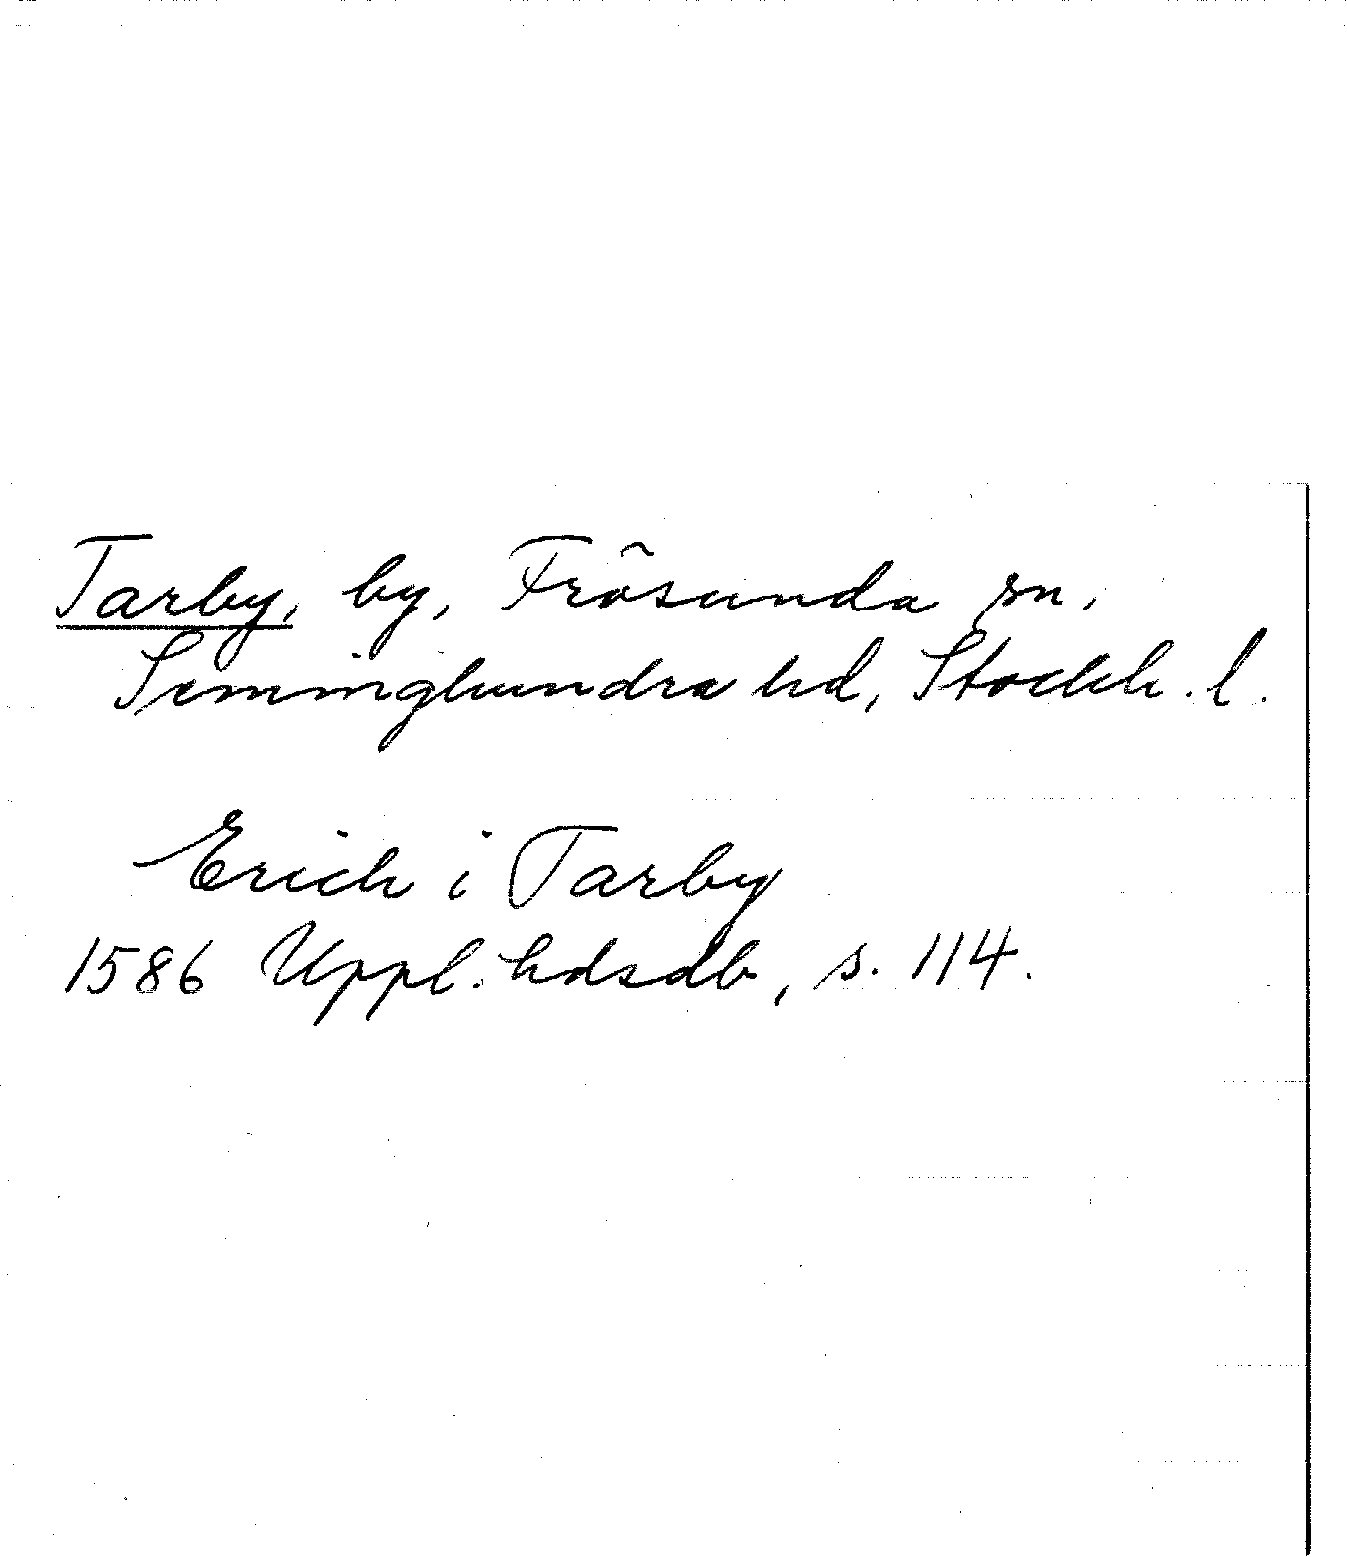 Tarby, by, Frösunda sn,
Seminghundra hd, Stockh. l.
Erich i Tarby
1586 Uppl. hdsdb, s. 114.